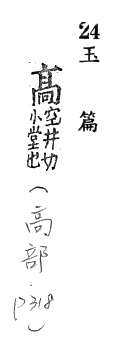 24
玉篇
髙空井切
小堂也
(高部.
p318)